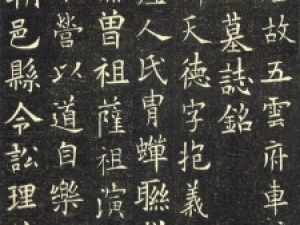 故五雲府車
墓誌銘
天德字抱義
人氏冑蟬聯
曾祖薩祖演
以道自樂
邑縣令訟理